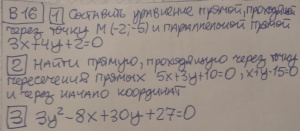 В16 1 Составить уравнение прямой, проходящей
через точку М (-2;-5) и параллельной прямой
3x+4y+2=0
2 Найти прямую, проходящую через точку
пересечения прямых 5x+3y+10=0; x+y-15=0
и через начало координат
3 3y²-8x+30y+27=0